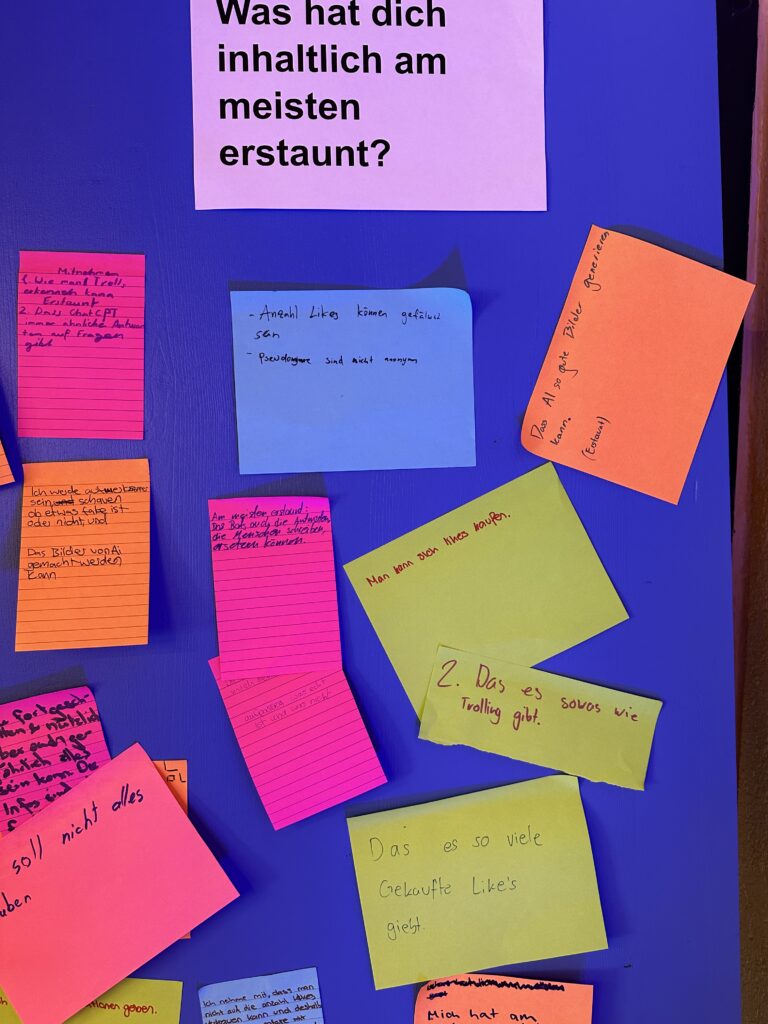 Was hat dich
inhaltlich am
meisten
erstaunt?
Mitnehmen
1. Wie man Troll,
erkennen kann
Erstaunt
2. Dass ChatGPT
immer ähnliche Antwor
ten auf Fragen
gibt
- Anzahl Likes können gefälscht
sein
- Pseudonyme sind nicht anonym
Dass AI so gute Bilder generieren
kann.
(Erstaunt)
Ich werde
sein und schauen
ob etwas fake ist
oder nicht, und
Das Bilder von Ai
gemacht werden
kann
Am meisten erstaunt:
Das Bots auch die Antworten,
die Menschen schreiben,
ersetzen können.
Man kann sich likes kaufen.
2. Das es sowas wie
Trolling gibt.
aufpassen was echt
ist und was nicht
fortgesch-
nützlich
aber auch
alles
sein kann. Die
Infos sind
soll nicht alles
uben
Das es so viele
Gekaufte Like's
giebt.
tionen geben.
Ich nehme mit, dass man
nicht auf die anzahl likes
vertrauen kann und deshalb
Mich hat am